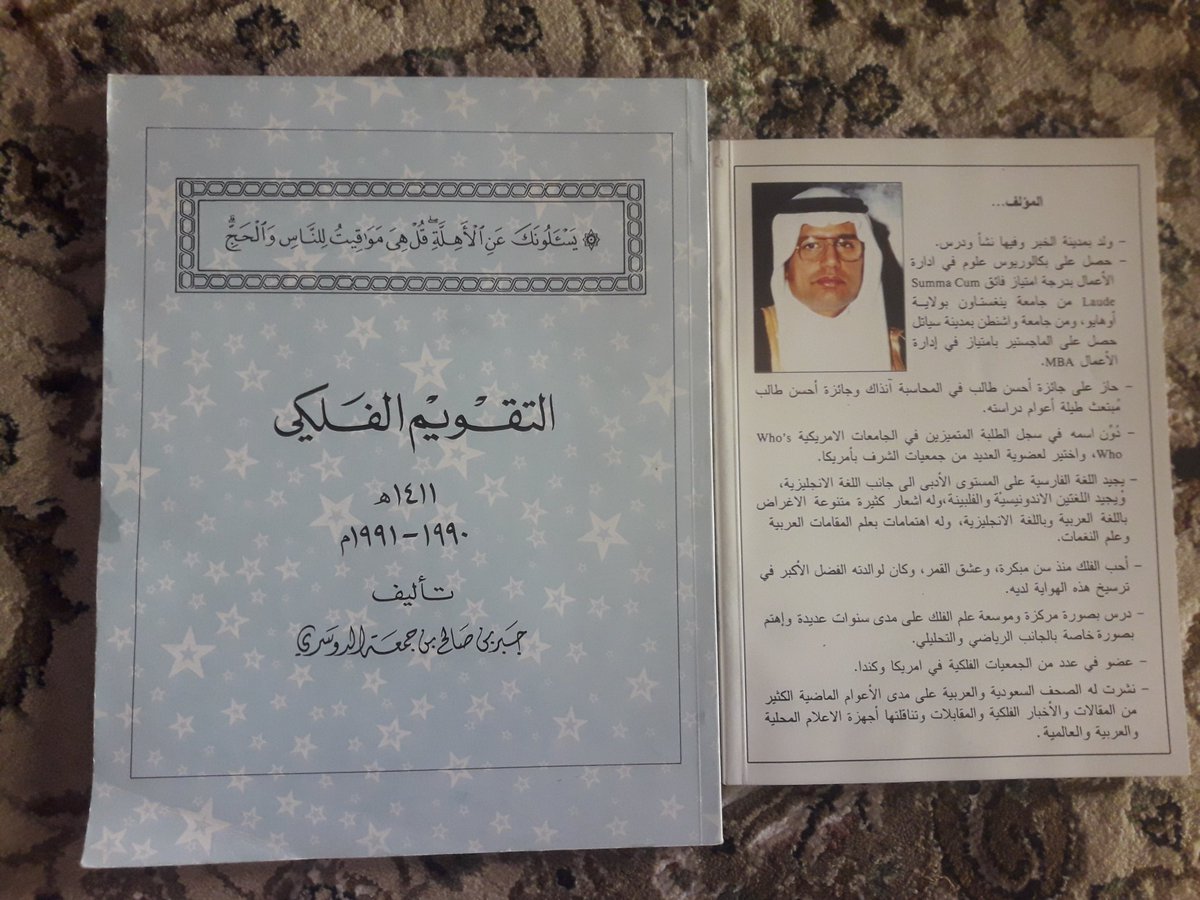 ۞ يَسْـَٔلُونَكَ عَنِ ٱلْأَهِلَّةِۖ قُلْ هِىَ مَوَٰقِيتُ لِلنَّاسِ وَٱلْحَجِّۗ
التقويم الفلكي
١٤١١ه
١٩٩٠-١٩٩١م
تأليف
جبر بن صالح بن جمعة الدوسري
المؤلف...
- ولد بمدينة الخبر وفيها نشأ ودرس.
- حصل على بكالوريوس علوم في ادارة
الأعمال بدرجة امتياز فائق Summa Cum
Laude من جامعة ينغستاون بولاية
أوهايو، ومن جامعة واشنطن بمدينة سياتل
حصل على الماجستير بامتياز في إدارة
الأعمال MBA.
- حاز على جائزة أحسن طالب في المحاسبة آنذاك وجائزة أحسن طالب
مُبتعث طيلة أعوام دراسته.
- دُوِّن اسمه في سجل الطلبة المتميزين في الجامعات الامريكية Who's
Who، واختير لعضوية العديد من جمعيات الشرف بأمريكا.
- يجيد اللغة الفارسية على المستوى الأدبي الى جانب اللغة الانجليزية،
ويجيد اللغتين الاندونيسيّة والفلبينة،وله اشعار كثيرة متنوعة الاغراض
باللغة العربية وباللغة الانجليزية، وله اهتمامات بعلم المقامات العربية
وعلم النغمات.
- أحب الفلك منذ سن مبكرة، وعشق القمر، وكان لوالدته الفضل الأكبر في
ترسيخ هذه الهواية لديه.
- درس بصورة مركزة وموسعة علم الفلك على مدى سنوات عديدة وإهتم
بصورة خاصة بالجانب الرياضي والتحليلي.
- عضو في عدد من الجمعيات الفلكية في امريكا وكندا.
- نشرت له الصحف السعودية والعربية على مدى الأعوام الماضية الكثير
من المقالات والأخبار الفلكية والمقابلات وتناقلتها أجهزة الاعلام المحلية
والعربية والعالمية.